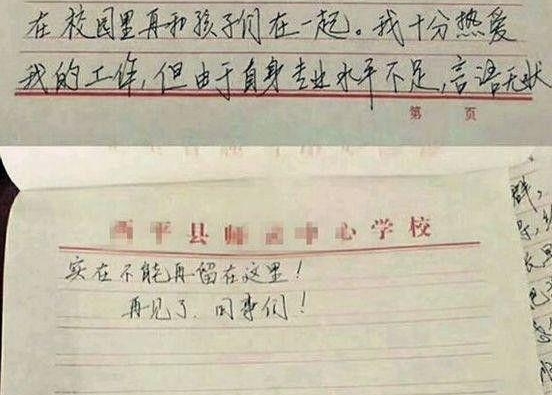 在校园里再和孩子们在一起。我十分热爱
我的工作,但由于自身专业水平不足,言语无状
第 页
西平县 中心学校
实在不能再留在这里!
再见了、同事们!